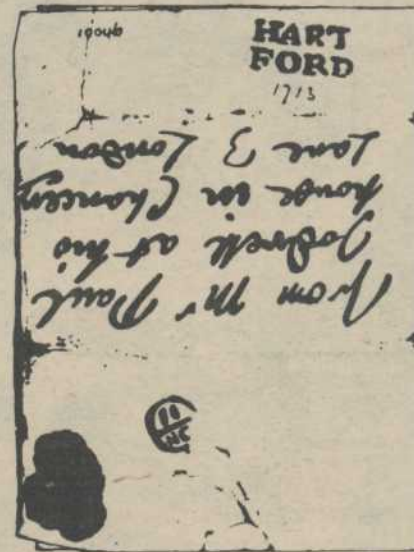 HART
FORD
1713
From Mr Paul
Jodrell at his
house in Chancery
Lane 3 London